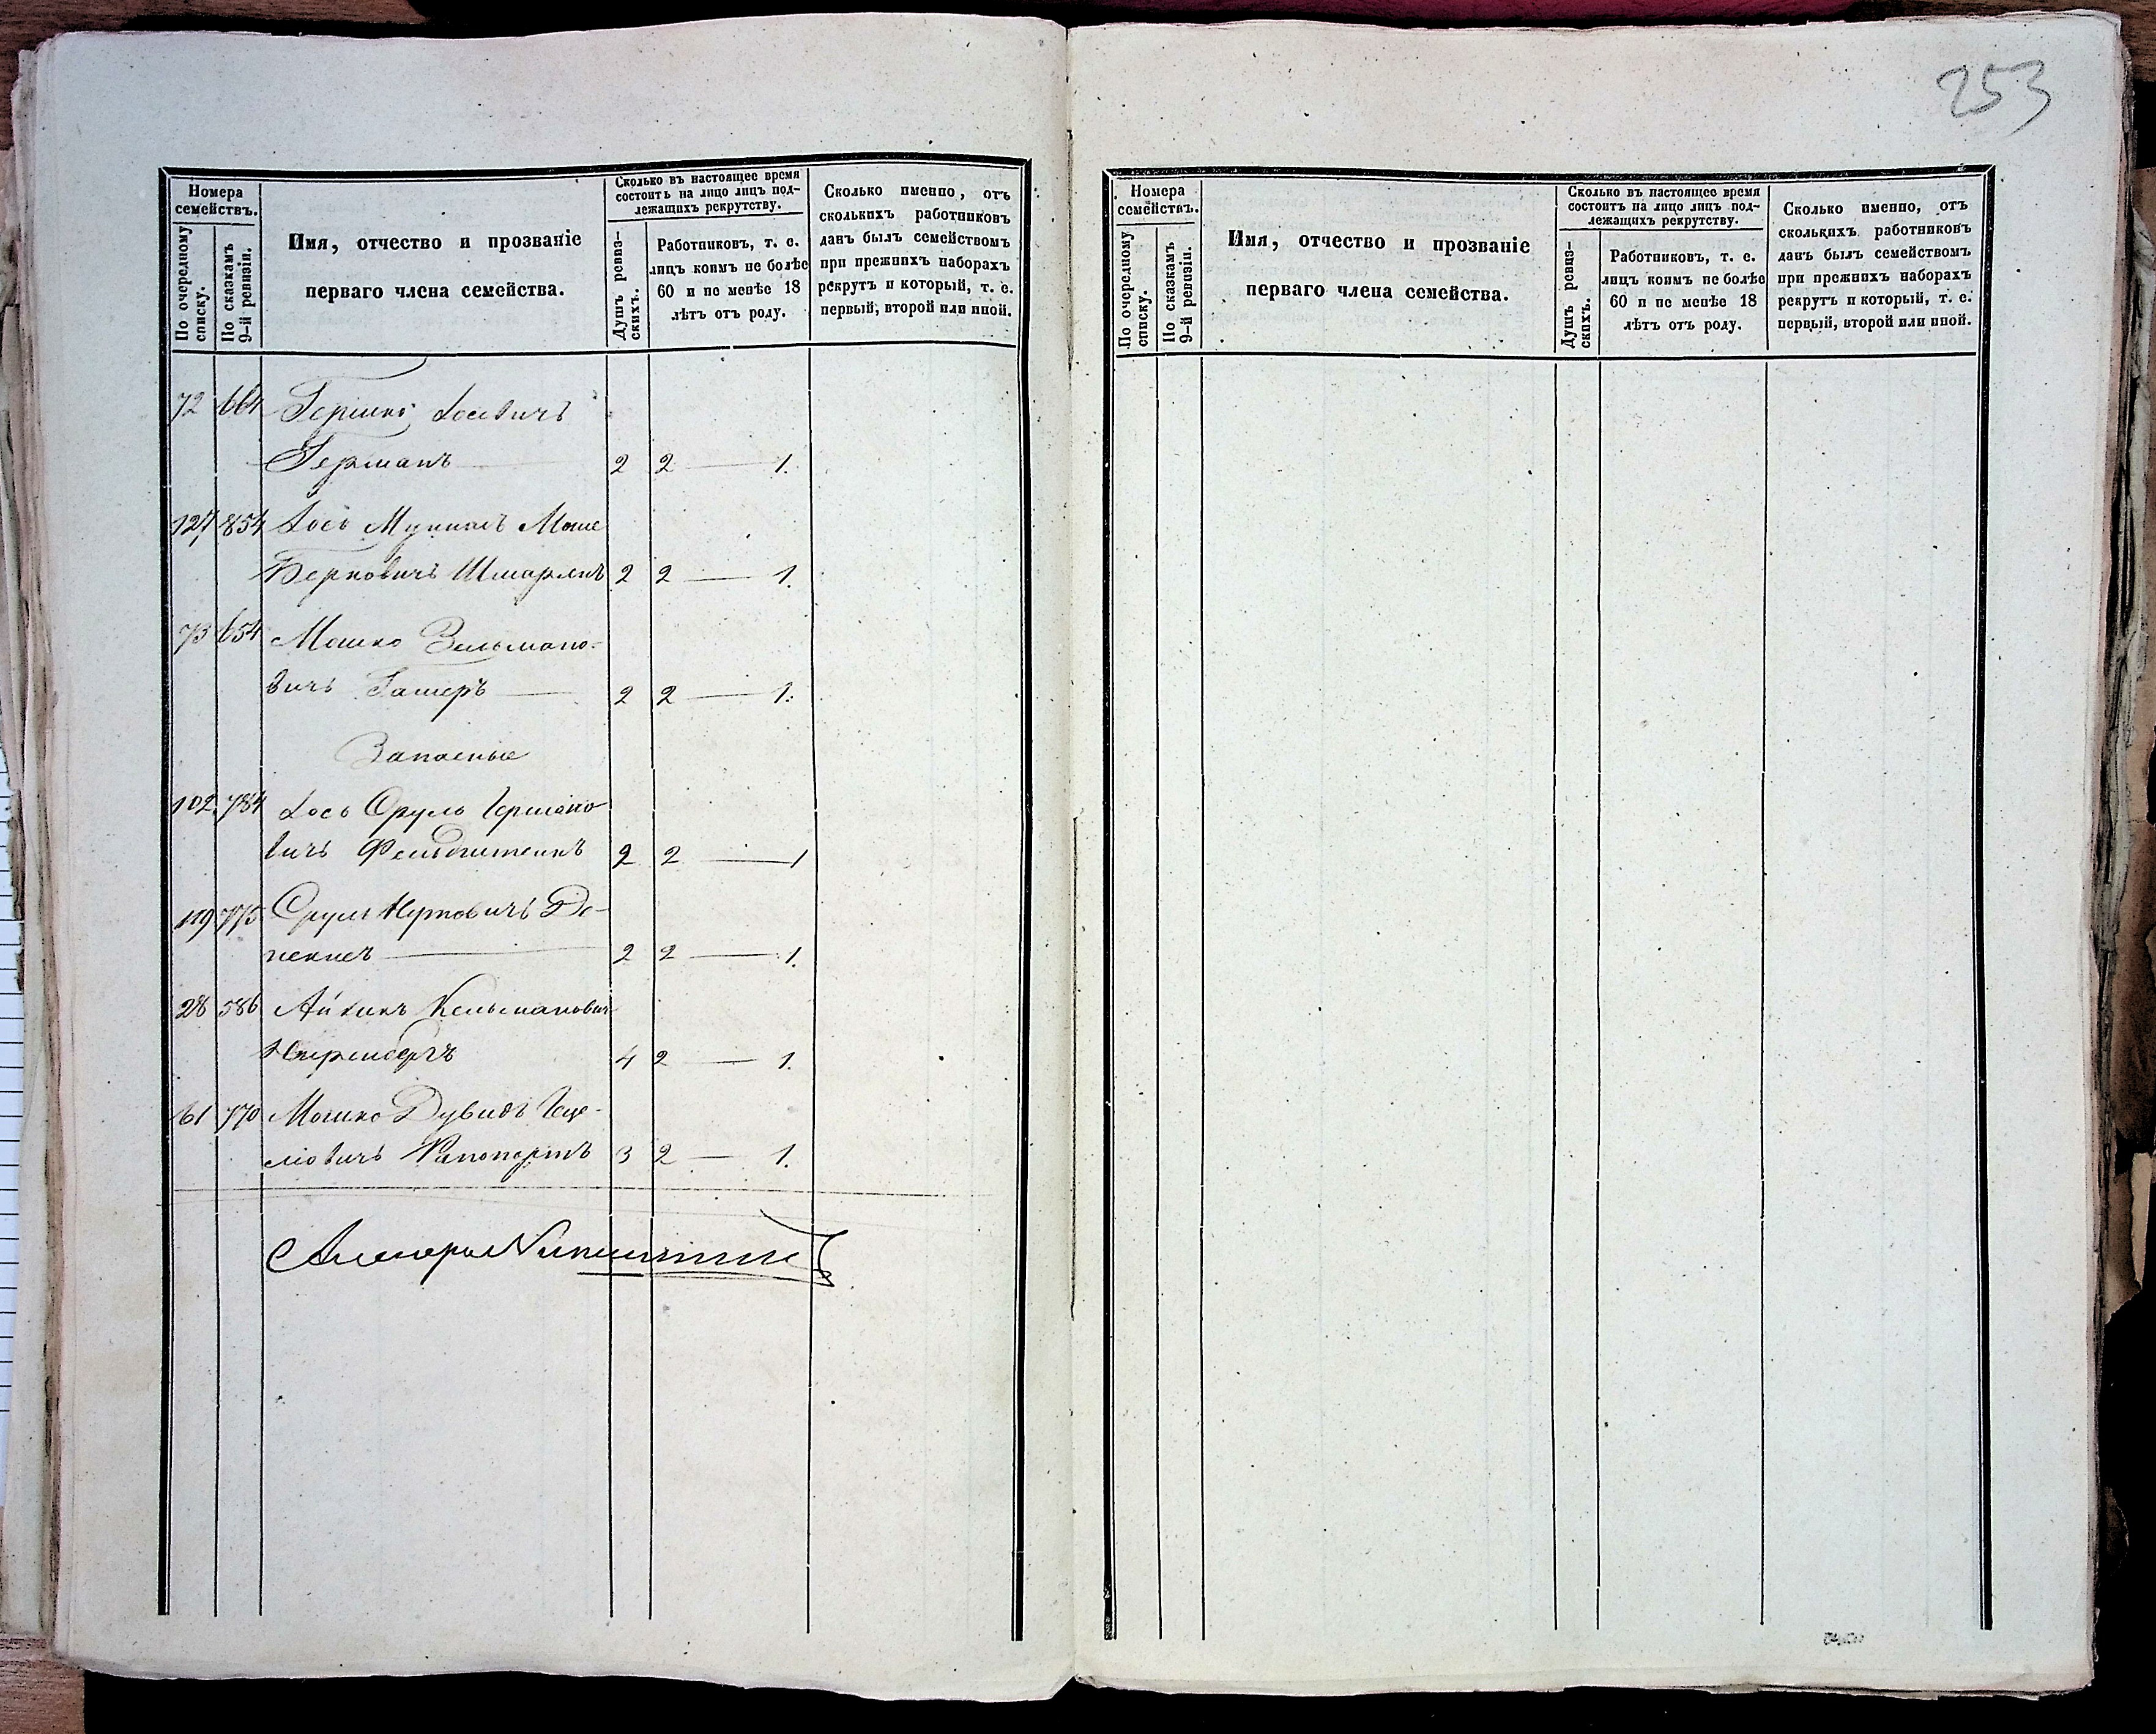 253
Номера семействъ.
По очередному списку.
По сказкамъ 9-й ревизіи.
Имя, отчество и прозваніе
перваго члена семейства.
Сколько въ настоящее время
состоитъ на лицо лицъ под-
лежащихъ рекрутству.
Душъ ревиз-
скихъ.
Работниковъ, т. е.
лицъ коимъ не болѣе
60 и не менѣе 18
лѣтъ отъ роду.
Сколько именно, отъ
сколькихъ работниковъ
данъ былъ семействомъ
при прежнихъ наборахъ
рекрутъ и который, т. е.
первый, второй или иной.
72 664 Гершко Іосевичъ
Германъ 2 2 — 1.
127 854 Іось Мошe
Берковичъ 2 2 — 1.
73 654 Мошко Зельмано-
вичъ 2 2 — 1.
Запасные
102 784 Іось Сруль Гершко-
вичъ 2 2 — 1
119 775 Сруль
2 2 — 1.
28 586 Кельманович
4 2 — 1.
61 770 Мошко Дувидъ Геце-
ліовичъ Рапопортъ 3 2 — 1.
Номера
семействъ.
По очередному
списку.
По сказкамъ
9-й ревизіи.
Имя, отчество и прозваніе
перваго члена семейства.
Сколько въ настоящее время
состоитъ на лицо лицъ под-
лежащихъ рекрутству.
Душъ ревиз-
скихъ.
Работниковъ, т. е.
лицъ коимъ не болѣе
60 и не менѣе 18
лѣтъ отъ роду.
Сколько именно, отъ
сколькихъ работниковъ
данъ былъ семействомъ
при прежнихъ наборахъ
рекрутъ и который, т. е.
первый, второй или иной.